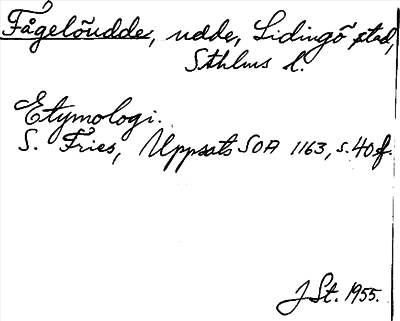 Fågelöudde, udde, Lidingö stad,
Sthlms l.
Etymologi.
S. Fries, Uppsats SOA 1163, s. 40 f.
J St. 1955.